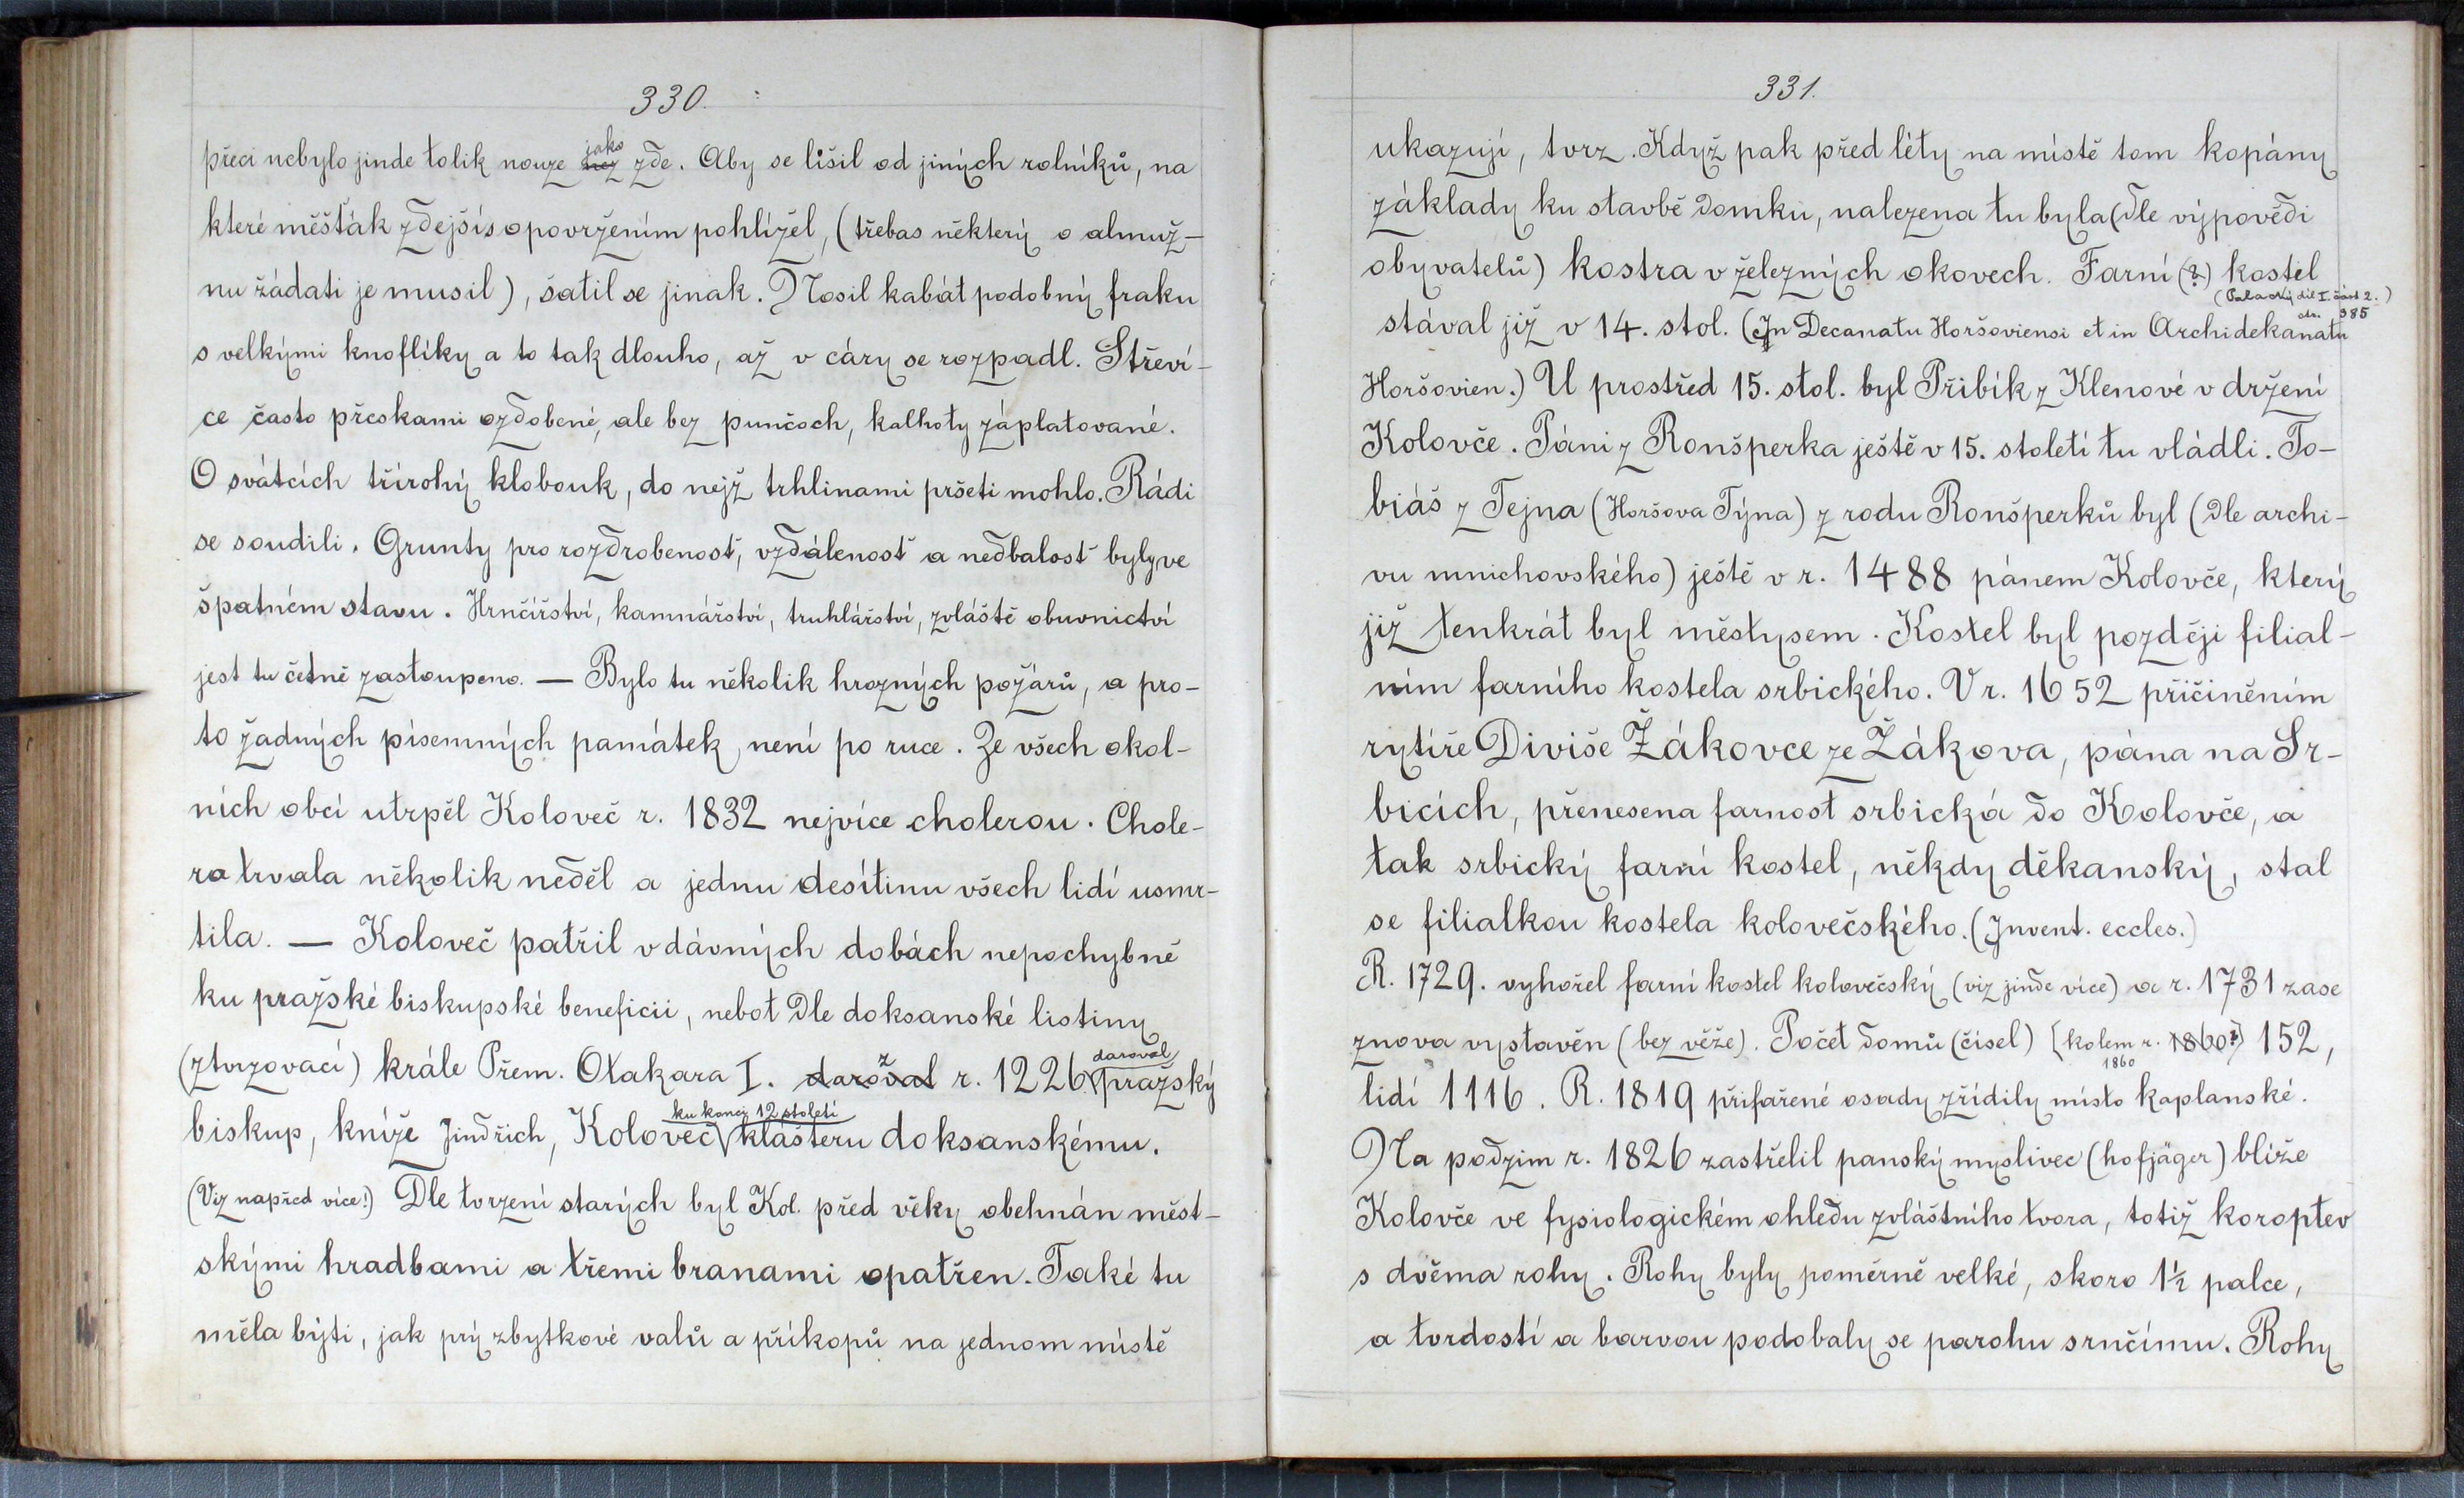 330.
přeci nebylo jinde tolik nouze jako než zde. Aby se lišil od jiných rolníků, na
které měšťák zdejší s opovržením pohlížel, (třebas některý o almuž-
nu žádati je musil), šatil se jinak. Nosil kabát podobný fraku
s velkými knoflíky a to tak dlouho, až v cáry se rozpadl. Střeví-
ce často přeskami ozdobené, ale bez punčoch, kalhoty záplatované.
O svátcích třírohý klobouk, do nejž trhlinami pršeti mohlo. Rádi
se soudili. Grunty pro rozdrobenosť, vzdálenosť a nedbalosť byly ve
špatném stavu. Hrnčířství, kamnářství, truhlářství, zvláště obuvnictví
jest tu četně zastoupeno. — Bylo tu několik hrozných požárů, a pro-
to žadných písemných památek není po ruce. Ze všech okol-
ních obcí utrpěl Koloveč r. 1832 nejvíce cholerou. Chole-
ra trvala několik neděl a jednu desítinu všech lidí usmr-
tila. — Koloveč patřil v dávných dobách nepochybně
ku pražské biskupské beneficii, nebot dle doksanské listiny
(ztvrzovací) krále Přem. Otakara I. daroval z r. 1226 daroval pražský
biskup, kníže Jindřich, Koloveč ku konci 12 století klášteru doksanskému.
(Viz napřed více!) Dle tvrzení starých byl Kol. před věky obehnán měst-
skými hradbami a třemi branami opatřen. Také tu
měla býti, jak prý zbytkové valů a příkopů na jednom místě
331.
ukazují, tvrz. Když pak před léty na místě tom kopány
základy ku stavbě domku, nalezena tu byla (dle výpovědi
obyvatelů) kostra v železných okovech. Farní (?) kostel
(Palacký díl I. část 2.)
str. 385
stával již v 14. stol. (In Decanatu Horšoviensi et in Archidekanatu
Horšovien.) U prostřed 15. stol. byl Přibík z Klenové v držení
Kolovče. Páni z Ronšperka ještě v 15. století tu vládli. To-
biáš z Tejna (Horšova Týna) z rodu Ronšperků byl (dle archi-
vu mnichovského) ještě v r. 1488 pánem Kolovče, který
již tenkrát byl městysem. Kostel byl později filial-
ním farního kostela srbického. V r. 1652 přičiněním
rytíře Diviše Žákovce ze Žákova, pána na Sr-
bicích, přenesena farnost srbická do Kolovče, a
tak srbický farní kostel, někdy děkanský, stal
se filialkou kostela kolovečského. (Invent. eccles.)
R. 1729. vyhořel farní kostel kolovečský (viz jinde více) a r. 1731 zase
znova vystavěn (bez věže). Počet domů (čísel) [kolem r. 1860?] 152,
1860
lidí 1116. R. 1819 přifařené osady zřídily místo kaplanské.
Na podzim r. 1826 zastřelil panský myslivec (hofjäger) blíže
Kolovče ve fysiologickém ohledu zvláštního tvora, totiž koroptev
s dvěma rohy. Rohy byly poměrně velké, skoro 1½ palce,
a tvrdostí a barvou podobaly se parohu srnčímu. Rohy